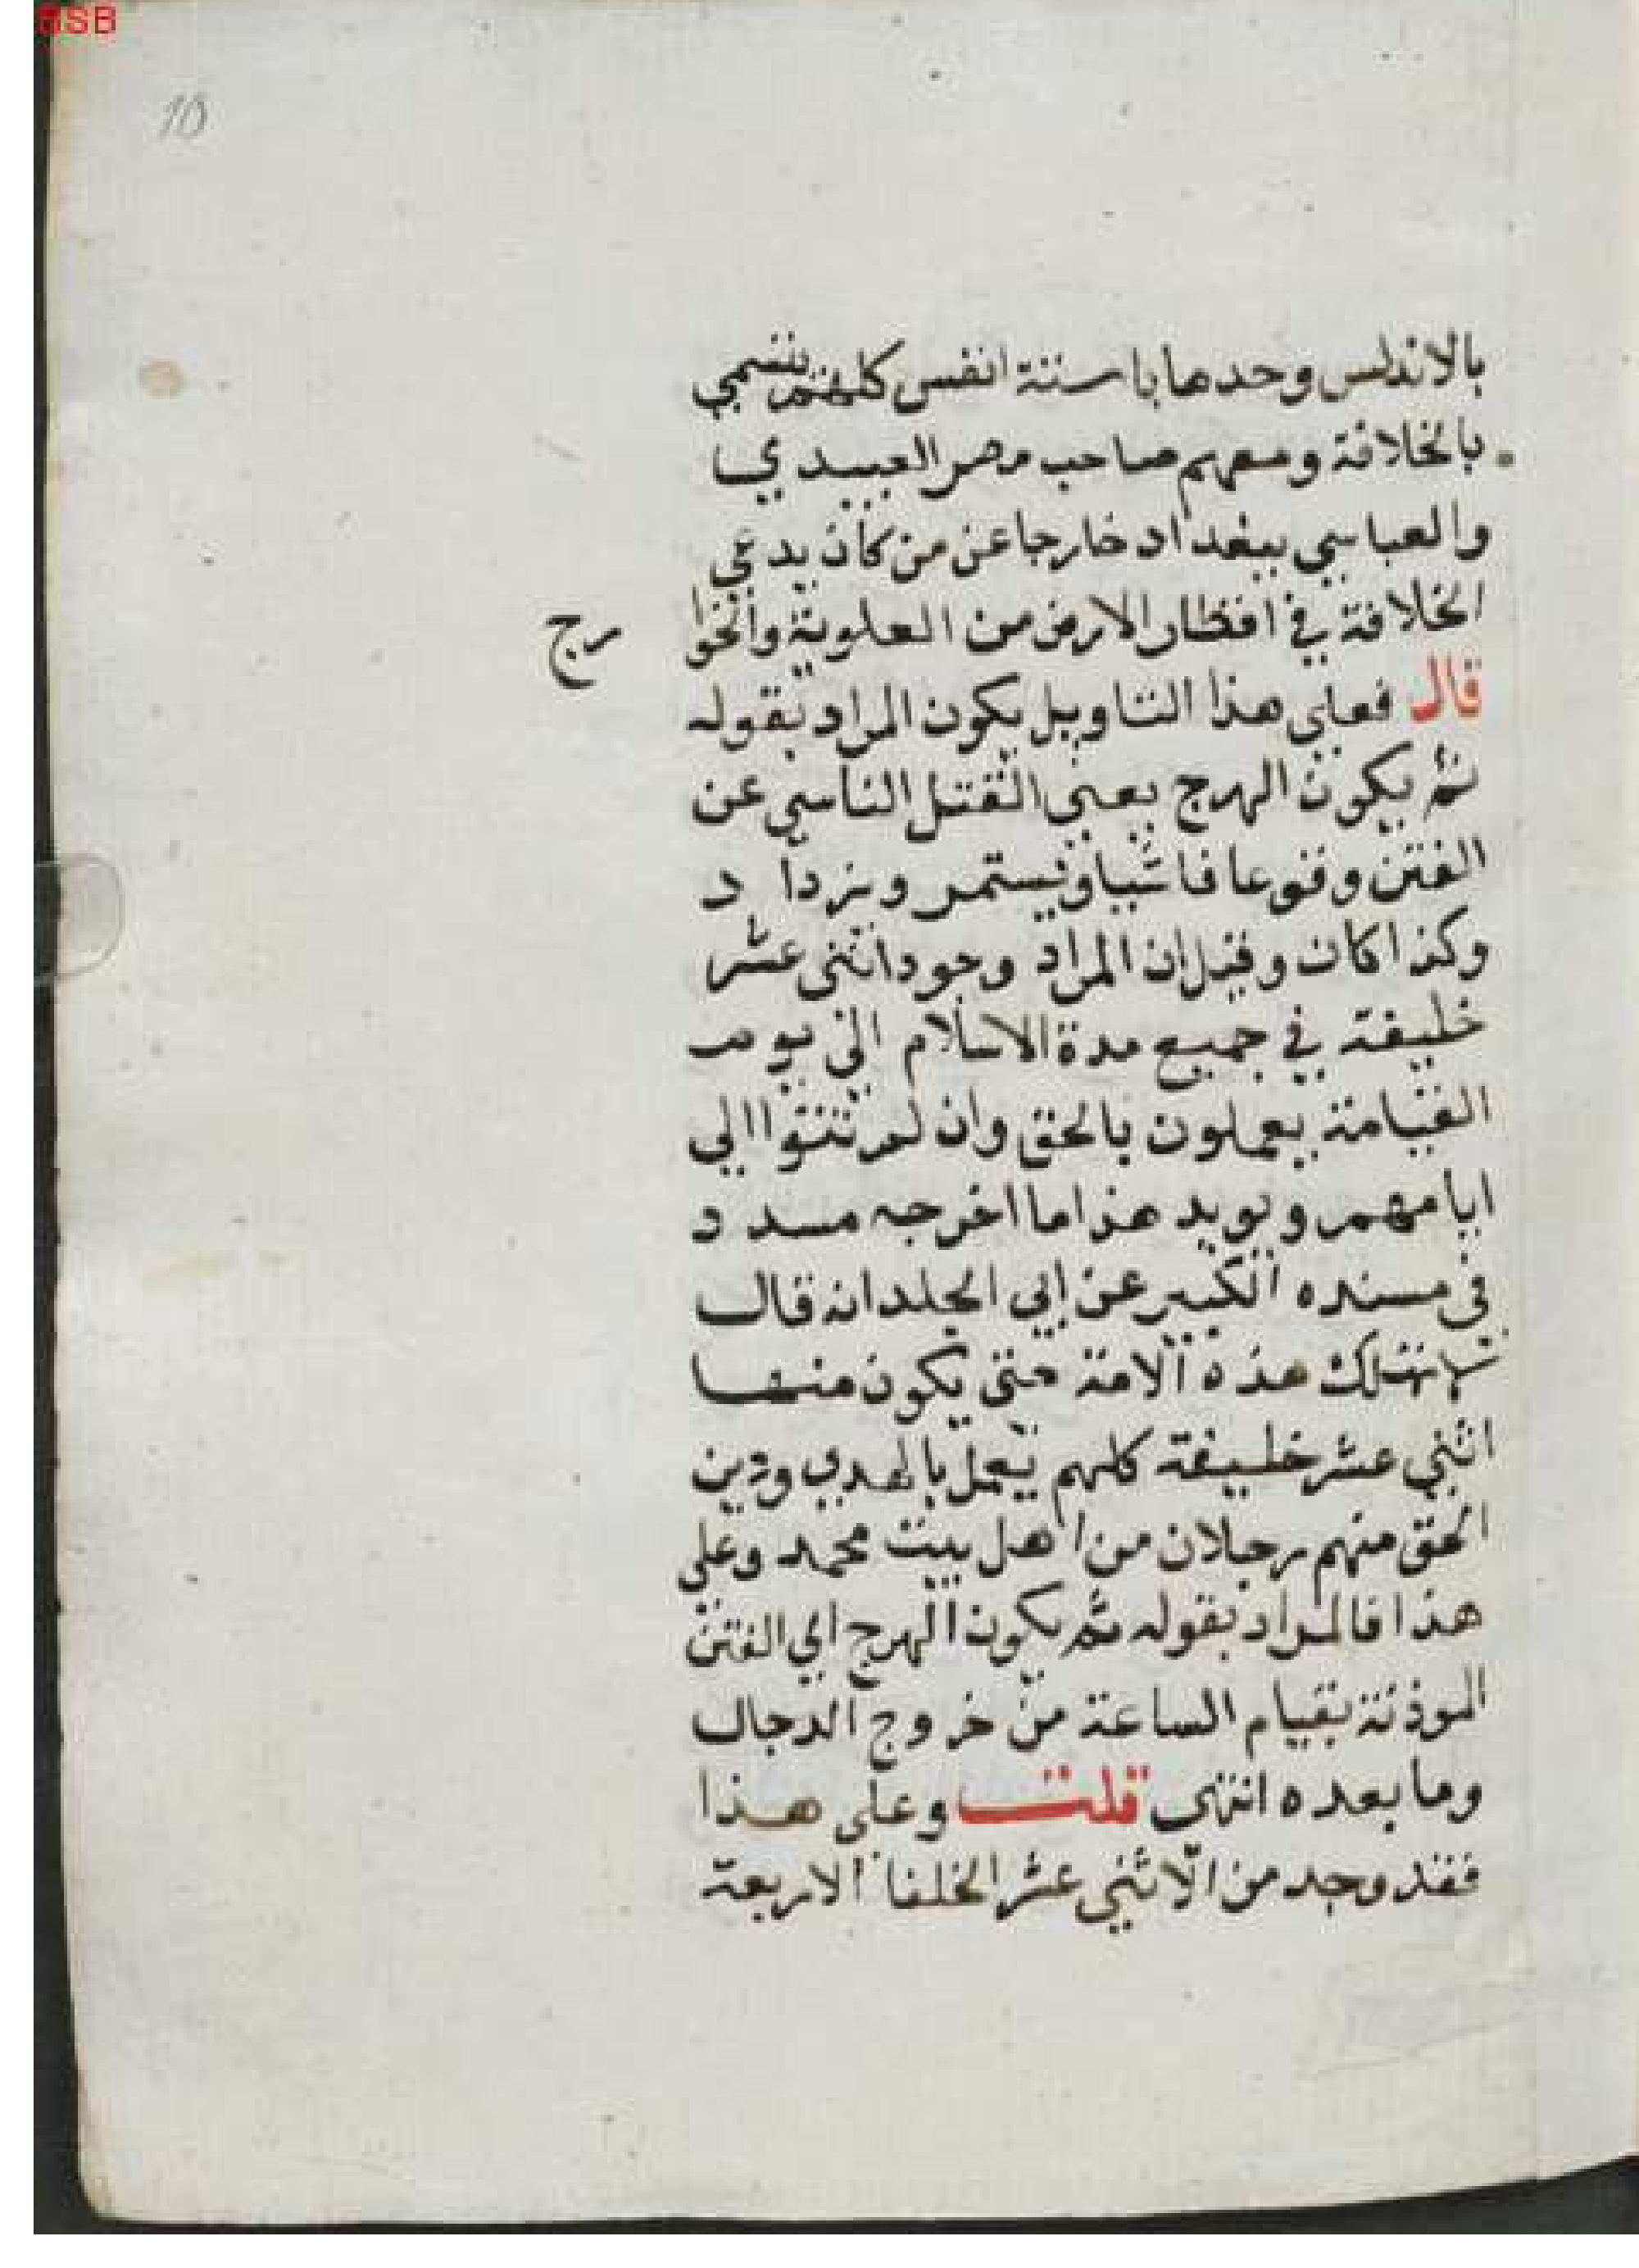 BSB
10
بالاندلس وحدها باستة انفس كلهم يتسمي
بالخلافة ومعهم صاحب مصر العبيدي
والعباسي ببغداد خارجا عن من كان يدعي
الخلافة في اقطار الارض من العلوية والخوا
رج
قال فعلي هذا التاويل يكون المراد بقوله
ثم يكون الهرج يعني القتل الناسي عن
الفتن وقوعا فاشيا ويستمر ويزدا د
وكذا كان وقيل ان المراد وجود اثني عشر
خليفة في جميع مدة الاسلام الي يوم
القيامة يعملون بالحق وان لم تتوا الي
ايامهم ويويد هذا ما اخرجه مسدد
في مسنده الكبير عن ابي الجلد انه قال
لا تهلك هذه الامة حتي يكون منها
اثني عشر خليفة كلهم يعمل بالهدي ودين
الحق منهم رجلان من اهل بيت محمد وعلي
هذا فالمراد بقوله ثم يكون الهرج اي الفتن
الموذنة بقيام الساعة من خروج الدجال
وما بعده انتهي قلت وعلي هذا
فقد وجد من الاثني عشر الخلفا الاربعة